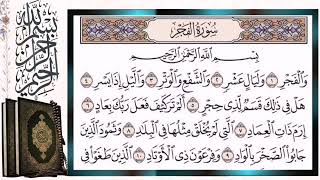 بسم الله الرحمن الرحيم
سُورَةُ الفَجْرِ
بِسْمِ اللَّهِ الرَّحْمَٰنِ الرَّحِيمِ
وَالْفَجْرِ ١ وَلَيَالٍ عَشْرٍ ٢ وَالشَّفْعِ وَالْوَتْرِ ٣ وَاللَّيْلِ إِذَا يَسْرِ ٤
هَلْ فِي ذَٰلِكَ قَسَمٌ لِّذِي حِجْرٍ ٥ أَلَمْ تَرَ كَيْفَ فَعَلَ رَبُّكَ بِعَادٍ ٦
إِرَمَ ذَاتِ الْعِمَادِ ٧ الَّتِي لَمْ يُخْلَقْ مِثْلُهَا فِي الْبِلَٰدِ ٨ وَثَمُودَ الَّذِينَ
جَابُوا الصَّخْرَ بِالْوَادِ ٩ وَفِرْعَوْنَ ذِي الْأَوْتَادِ ١٠ الَّذِينَ طَغَوْا فِي